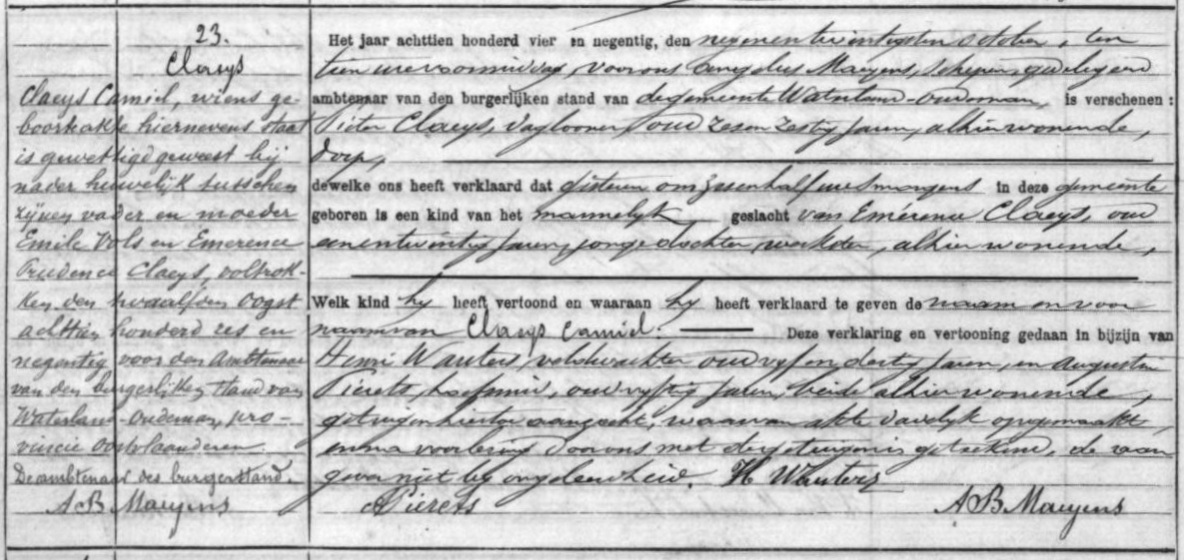 23.
Claeys
Claeys Camiel, wiens ge-
boorteakte hiernevens staat
is gewettigd geweest bij
nader huwelijk tusschen
zijnen vader en moeder
Emile Vols en Emerence
Prudence Claeys, voltrok-
ken den twaalfden Oogst
achttien honderd zes en
negentig voor den Ambtenaar
van den burgerlijken stand van
Waterland-Oudeman, pro-
vincie Oostvlaanderen.
De ambtenaar des burgerstand.
A B Maeyens
Het jaar achttien honderd vier en negentig, den negenentwintigsten october, ten
tien ure voormiddag, voor ons Angelus Maeyens, schepen, gedelegeerd
ambtenaar van den burgerlijken stand van de gemeente Waterland-Oudeman, is verschenen :
Pieter Claeys, daglooner, oud zesenzestig jaren, alhier wonende,
dorp,
dewelke ons heeft verklaard dat gisteren om zevenhalf ure smorgens in deze gemeente
geboren is een kind van het mannelyk geslacht van Emérence Claeys, oud
eenentwintig jaren, jonge dochter, werkster, alhier wonende,
Welk kind hy heeft vertoond en waaraan hy heeft verklaard te geven de naam en voor
naam van Claeys Camiel. Deze verklaring en vertooning gedaan in bijzijn van
Henri Wauters, veldwachter, oud vyfendertig jaren, en Augustin
Pierets, hoefsmid, oud vyftig jaren, beide alhier wonende,
getuigen hiertoe aangezocht, waarvan akte dadelyk opgemaakt,
en na voorlezing door ons met de getuigen is geteekend, de aan
gever niet by ongeleerdheid. H Wauters
A Pierets
A B Maeyens